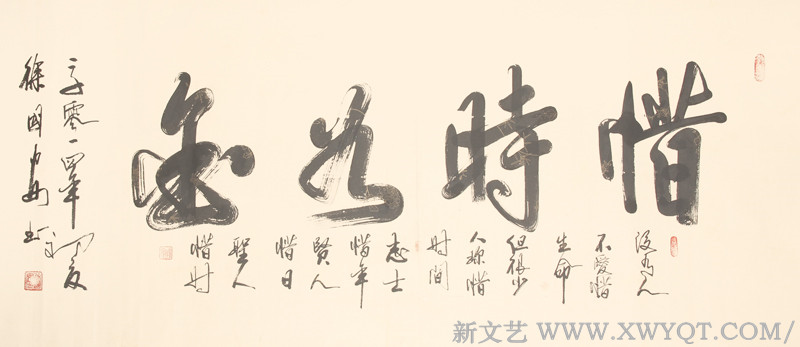 惜時如金
没有人
不愛惜
生命
但很少
人珎惜
时間
志士
惜年
賢人
惜日
聖人
惜时
二零一四年初夏
徐国
新文艺 WWW.XWYQT.COM/